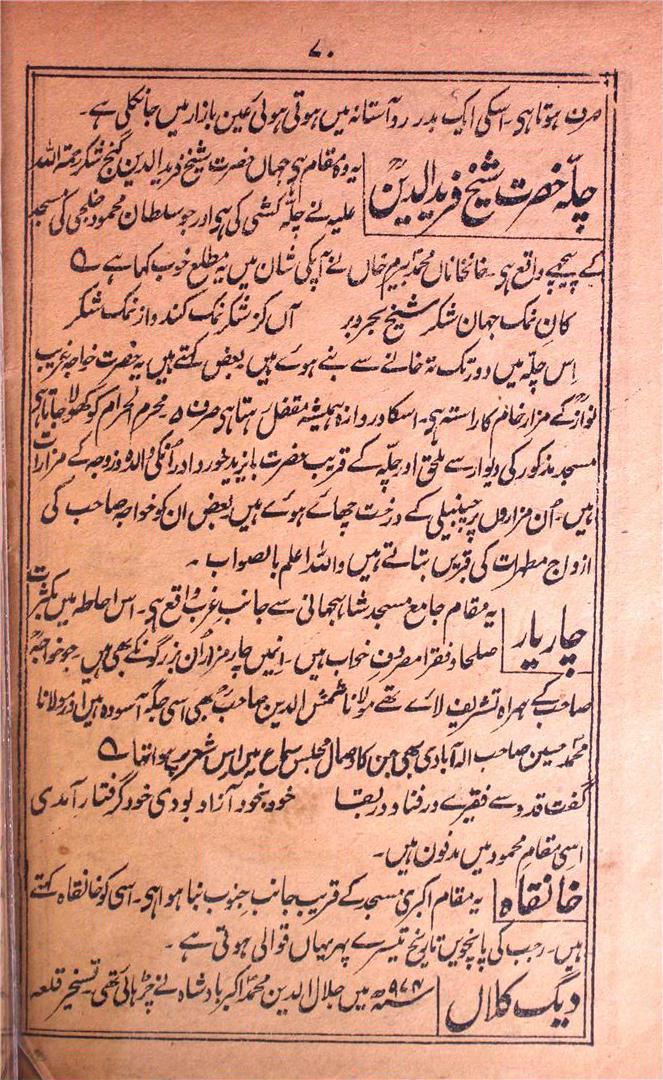 ۷۰
صرف ہوتا ہی۔ اسکی ایک بدر رو آستانہ میں ہوتی ہوئی عین بازار میں جا نکلی ہے۔
چلّہ حضرت شیخ فرید الدینؒ
یہ وہ مقام ہی جہاں حضرت شیخ فرید الدین گنج شکر رحمتہ اللہ
علیہ نے چلّہ کشی کی ہی اور جو سلطان محمود خلجی کی مسجد
کے پیچھے واقع ہی۔ خانخاناں محمد بیرم خاں نے آپکی شان میں یہ مطلع خوب کہا ہے ؎
کانِ نمک جہان شکر شیخ بحر و بر آں کز شکر نمک کند و از نمک شکر
اِس چلّہ میں دور تک تہ خانے سے بنے ہوے ہیں بعض کہتے ہیں یہ حضرت خواجہ غریب
نوازؒ کے مزار خام کا راستہ ہی۔ اسکا دروازہ ہمیشہ مقفل رہتا ہی صرف ۵۔ محرم الحرام کو کھولا جاتا ہی
مسجد مذکور کی دیوار سے ملحق اور چلّہ کے قریب حضرت بایزید خورد اور اُنکی والدہ و زوجہ کے مزارات
ہیں۔ اُن مزاروں پر چنبیلی کے درخت چھائے ہوے ہیں بعض ان کو خواجہ صاحب کی
ازواج مطہرات کی قبریں بتاتے ہیں واللہ اعلم بالصواب ۔
چار یار
یہ مقام جامع مسجد شاہجہانی سے جانب غرب واقع ہی۔ اس احاطہ میں بکثرت
صلحا و فقرا مصروف خواب ہیں۔ انمیں چار مزار اُن بزرگونکے بھی ہیں۔ جو خواجہؒ
صاحب کے ہمراہ تشریف لائے تھے مولانا شمس الدین صاحبؒ بھی اسی جگہ آسودہ ہیں اور مولانا
محمد حسین صاحب الہ آبادی بھی جن کا وصال مجلس سماع میں اس شعر پر ہوا تھا ؎
گفت قدوسے فقیرے در فنا و در بقا خود بخود آزاد بودی خود گرفتار آمدی
اسی مقام محمود میں مدفون ہیں۔
خانقاہ
یہ مقام اکبری مسجد کے قریب جانب جنوب بنا ہوا ہی۔ اسی کو خانقاہ کہتے
ہیں۔ رجب کی پانچویں تاریخ تیسرے پہر یہاں قوالی ہوتی ہے ۔
دیگ کلاں
سنہ ۹۷۴ھ میں جلال الدین محمد اکبر بادشاہ نے چڑھائی تھی۔ تسخیر قلعہ